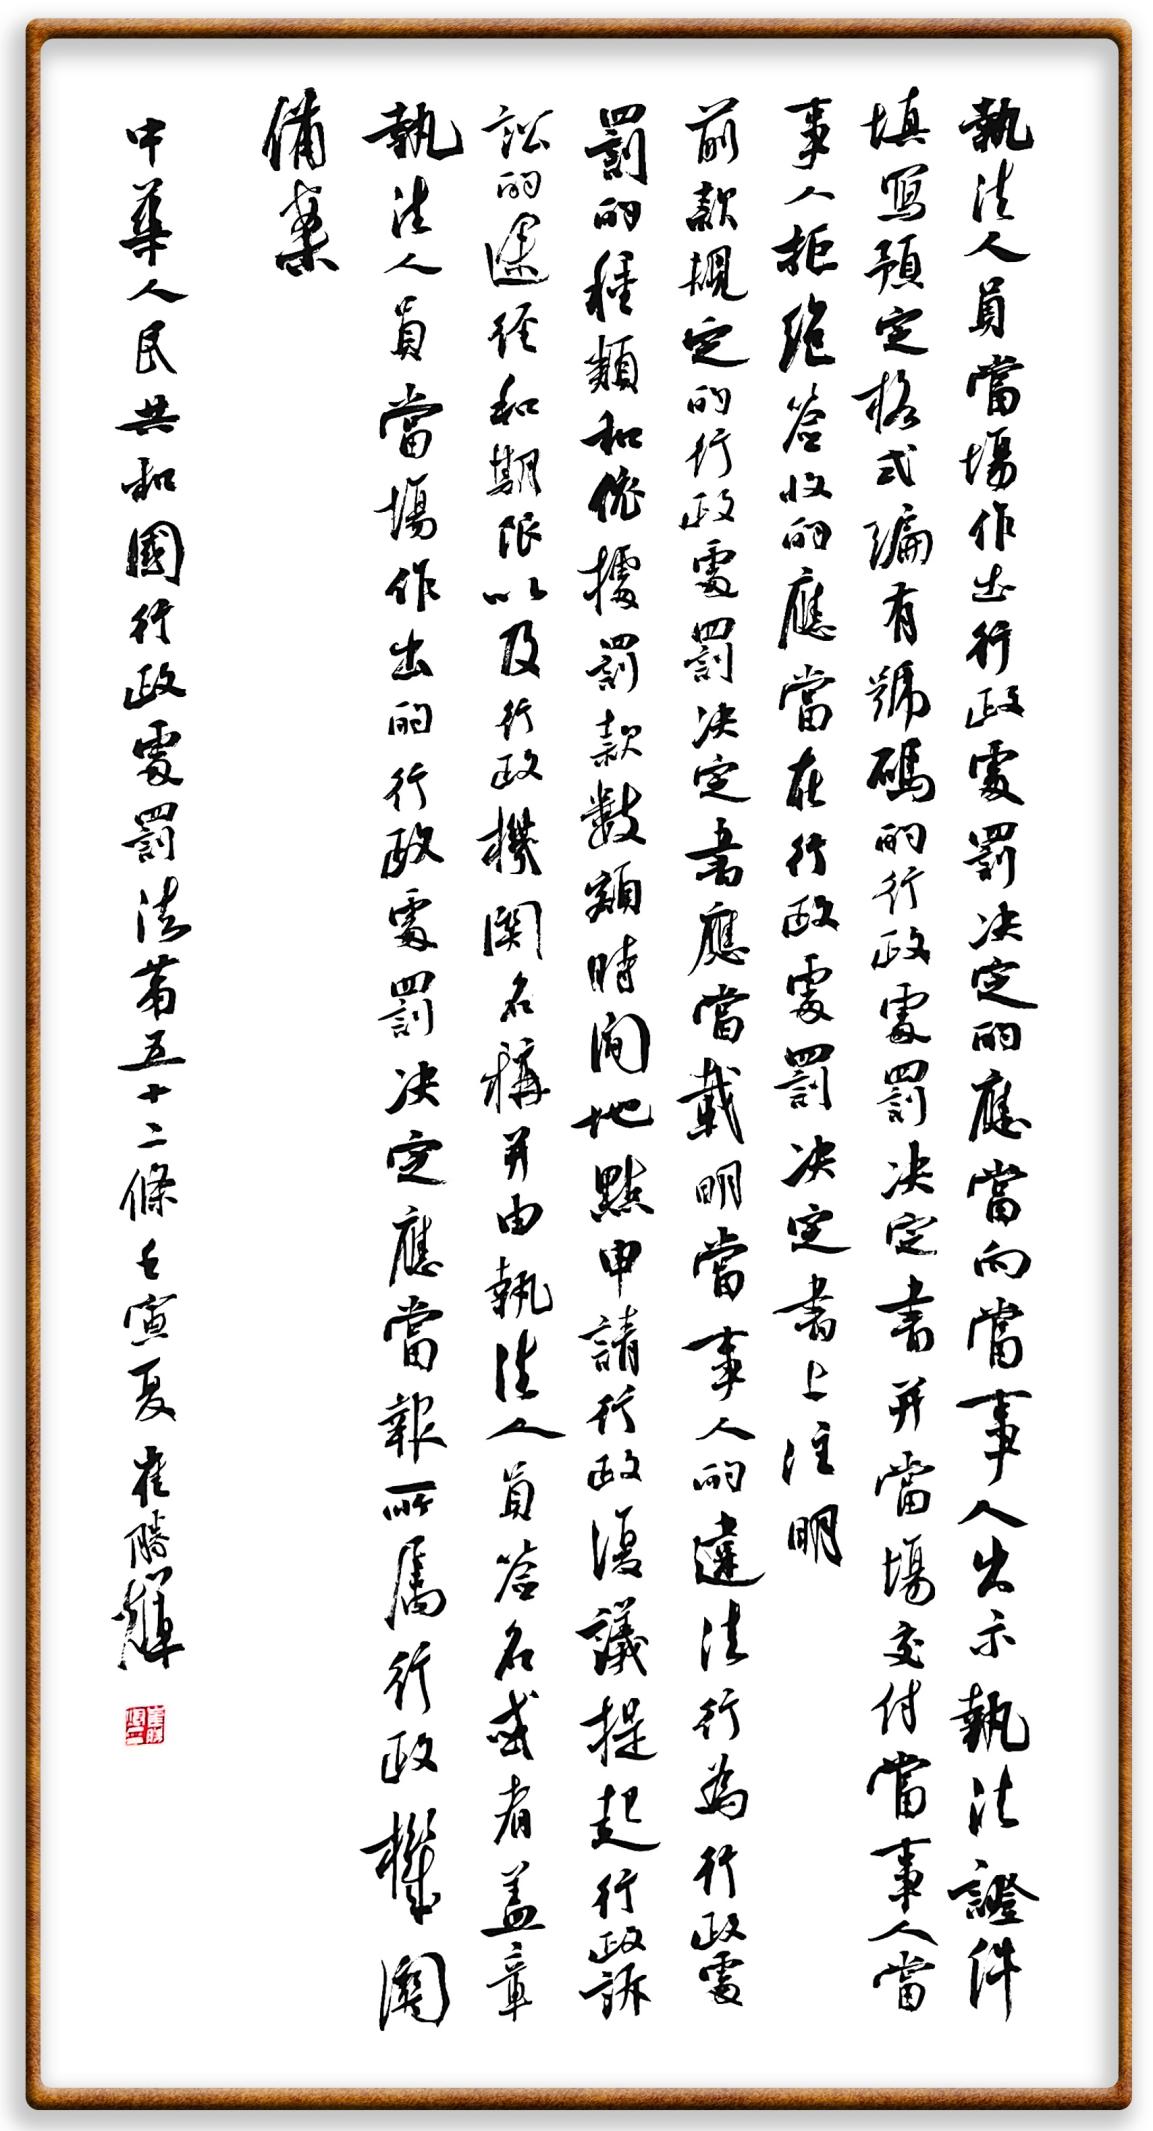 執法人員當場作出行政處罰決定的應當向當事人出示執法證件
填寫預定格式編有號碼的行政處罰決定書并當場交付當事人當
事人拒絕簽收的應當在行政處罰決定書上注明
前款規定的行政處罰決定書應當載明當事人的違法行為行政處
罰的種類和依據罰款數額時間地點申請行政復議提起行政訴
訟的途徑和期限以及行政機關名稱并由執法人員簽名或者蓋章
執法人員當場作出的行政處罰決定應當報所屬行政機關
備案
中華人民共和國行政處罰法第五十二條壬寅夏崔勝輝